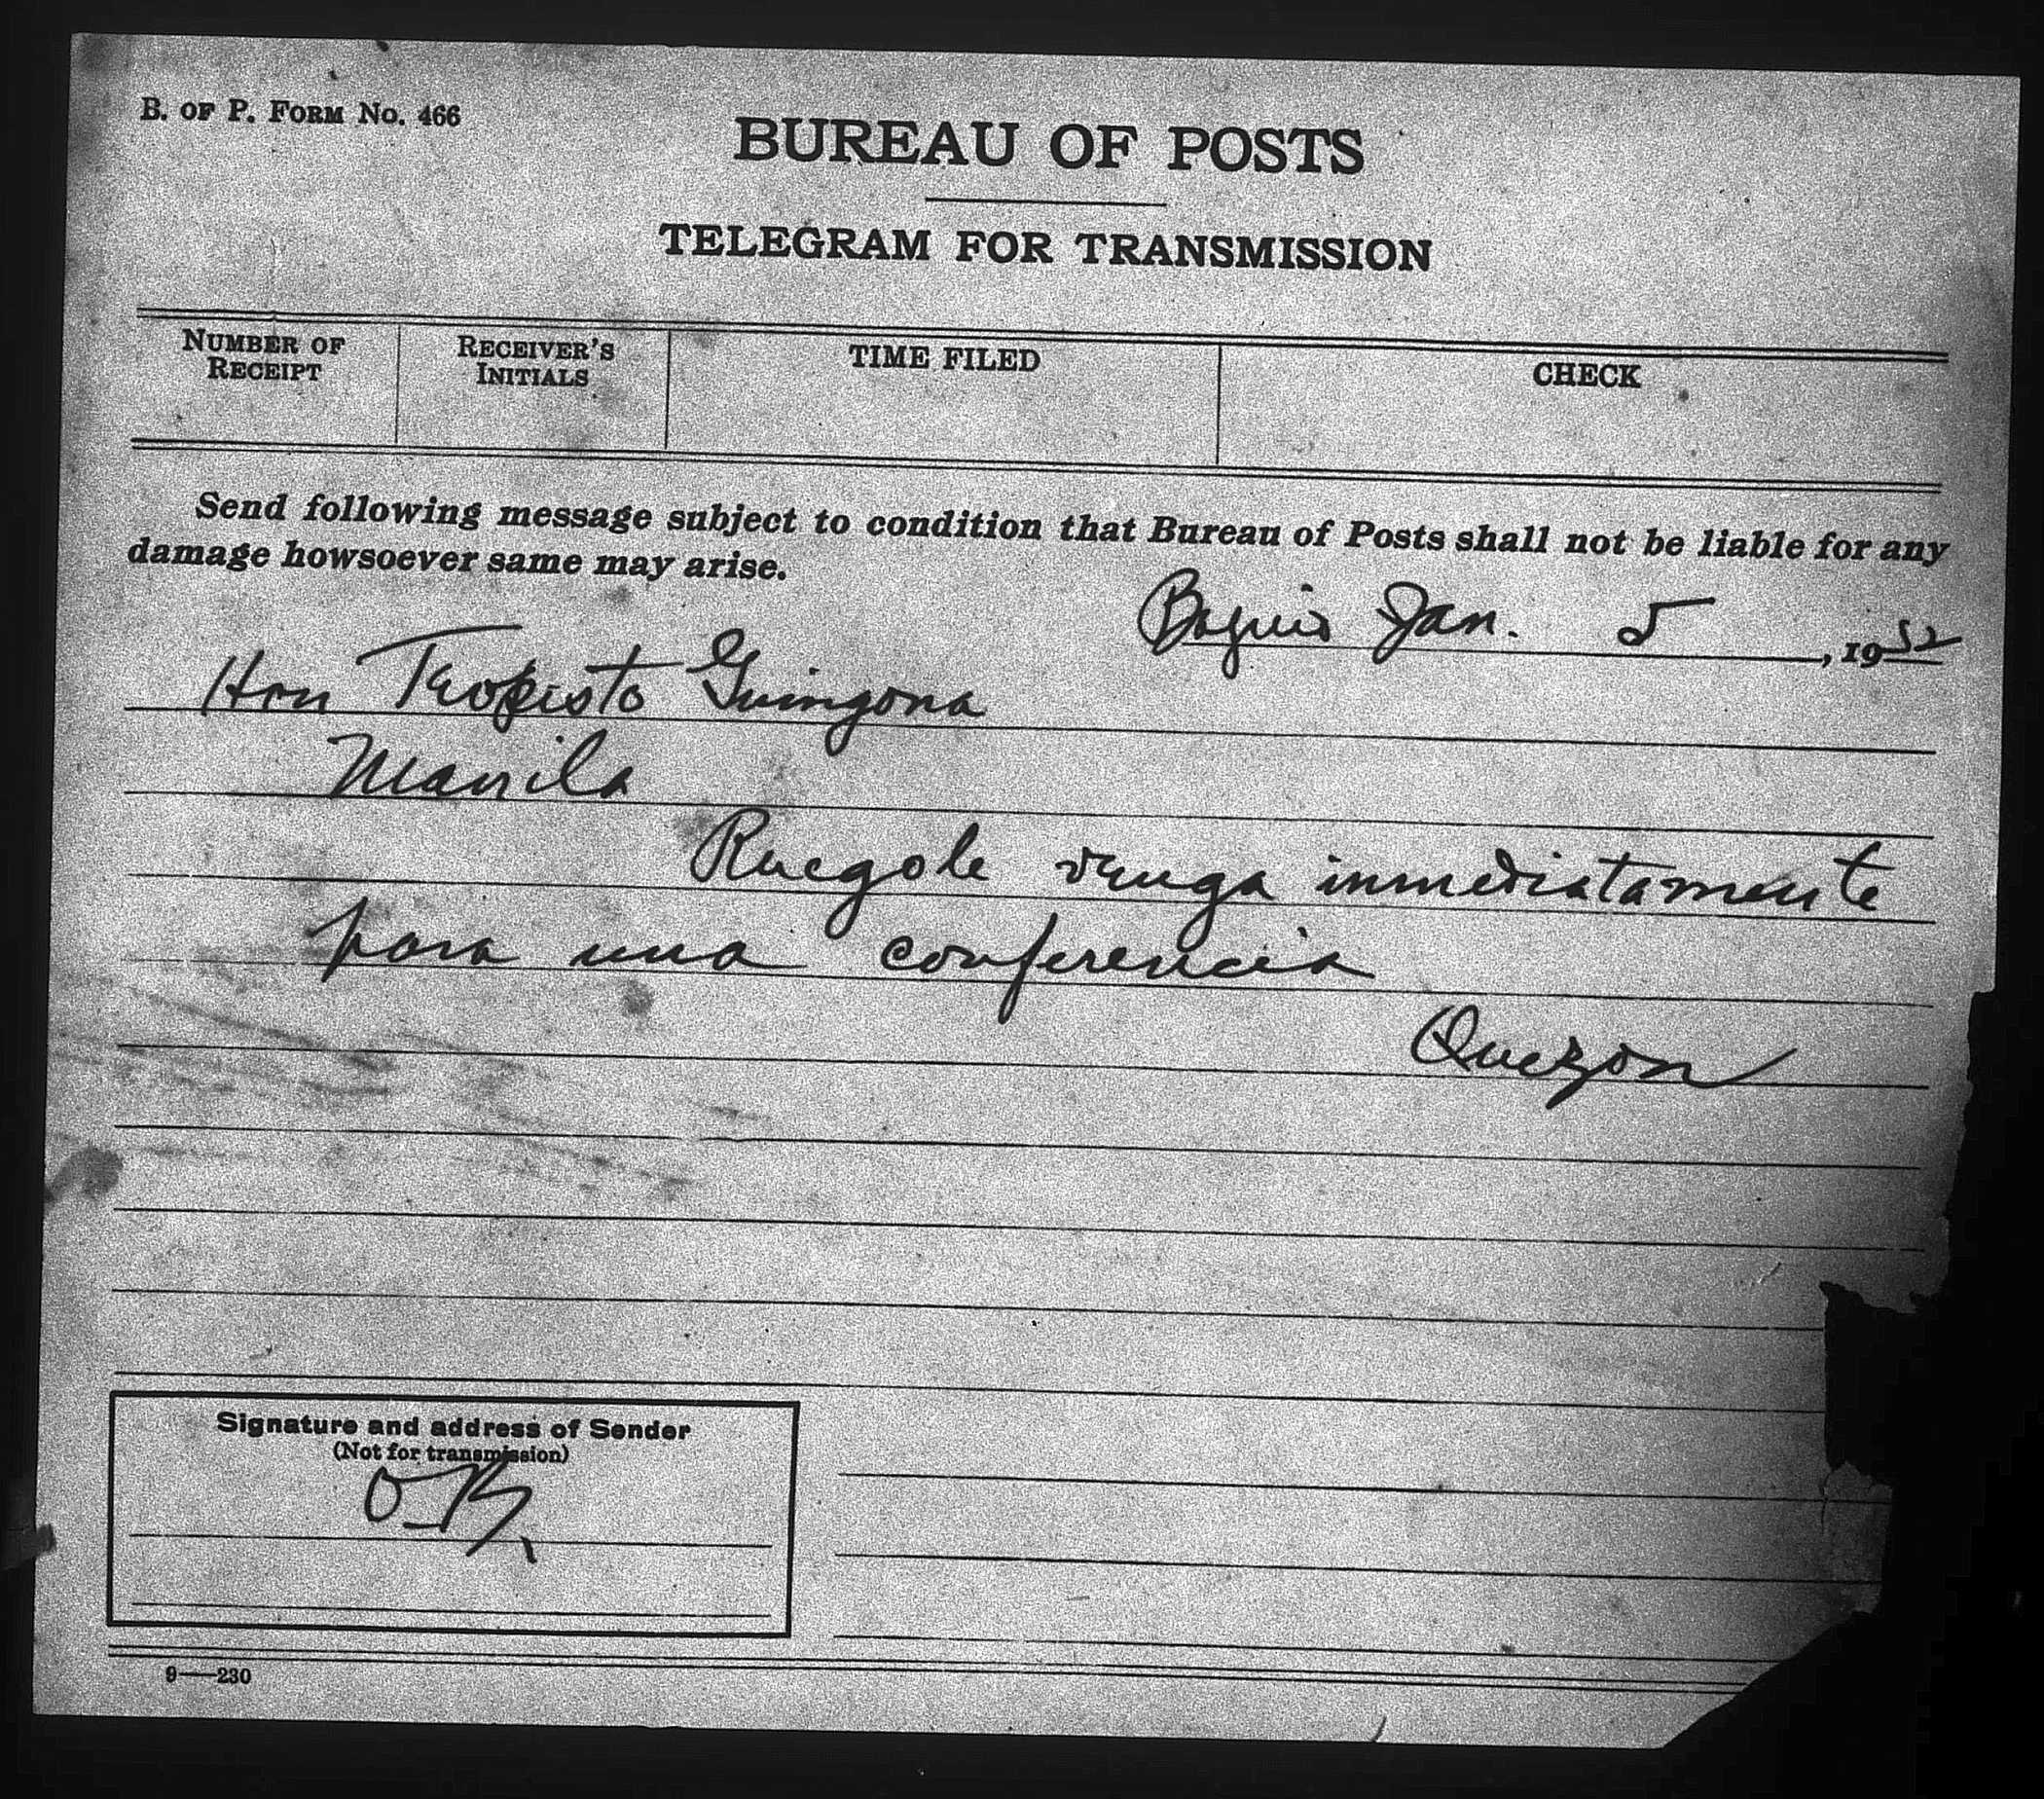 B. OF P. FORM NO. 466
BUREAU OF POSTS
TELEGRAM FOR TRANSMISSION
NUMBER OF RECEIPT
RECEIVER'S INITIALS
TIME FILED
CHECK
Send following message subject to condition that Bureau of Posts shall not be liable for any
damage howsoever same may arise.
Baguio Jan. 5, 1932
Hon Teopisto Guingona
Manila
Ruegole venga inmediatamente
para una conferencia
Quezon
Signature and address of Sender
(Not for transmission)
O.K.
9—230